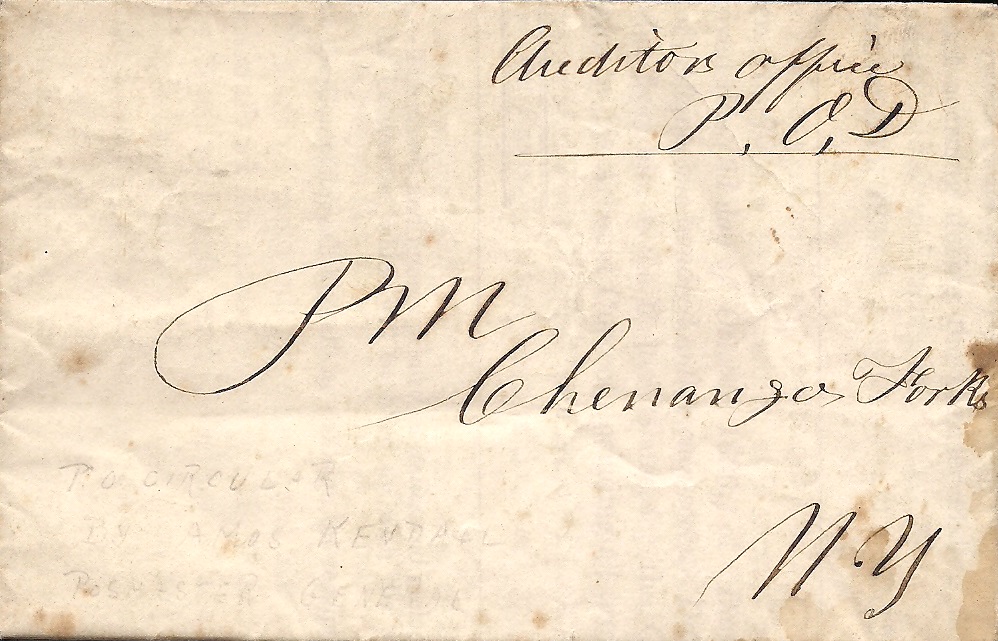 Auditors office
P. O, D
PM
Chenango Forks
N.Y
P.O CIRCULAR
BY AMOS KENDALL
POSMASTER GENERAL